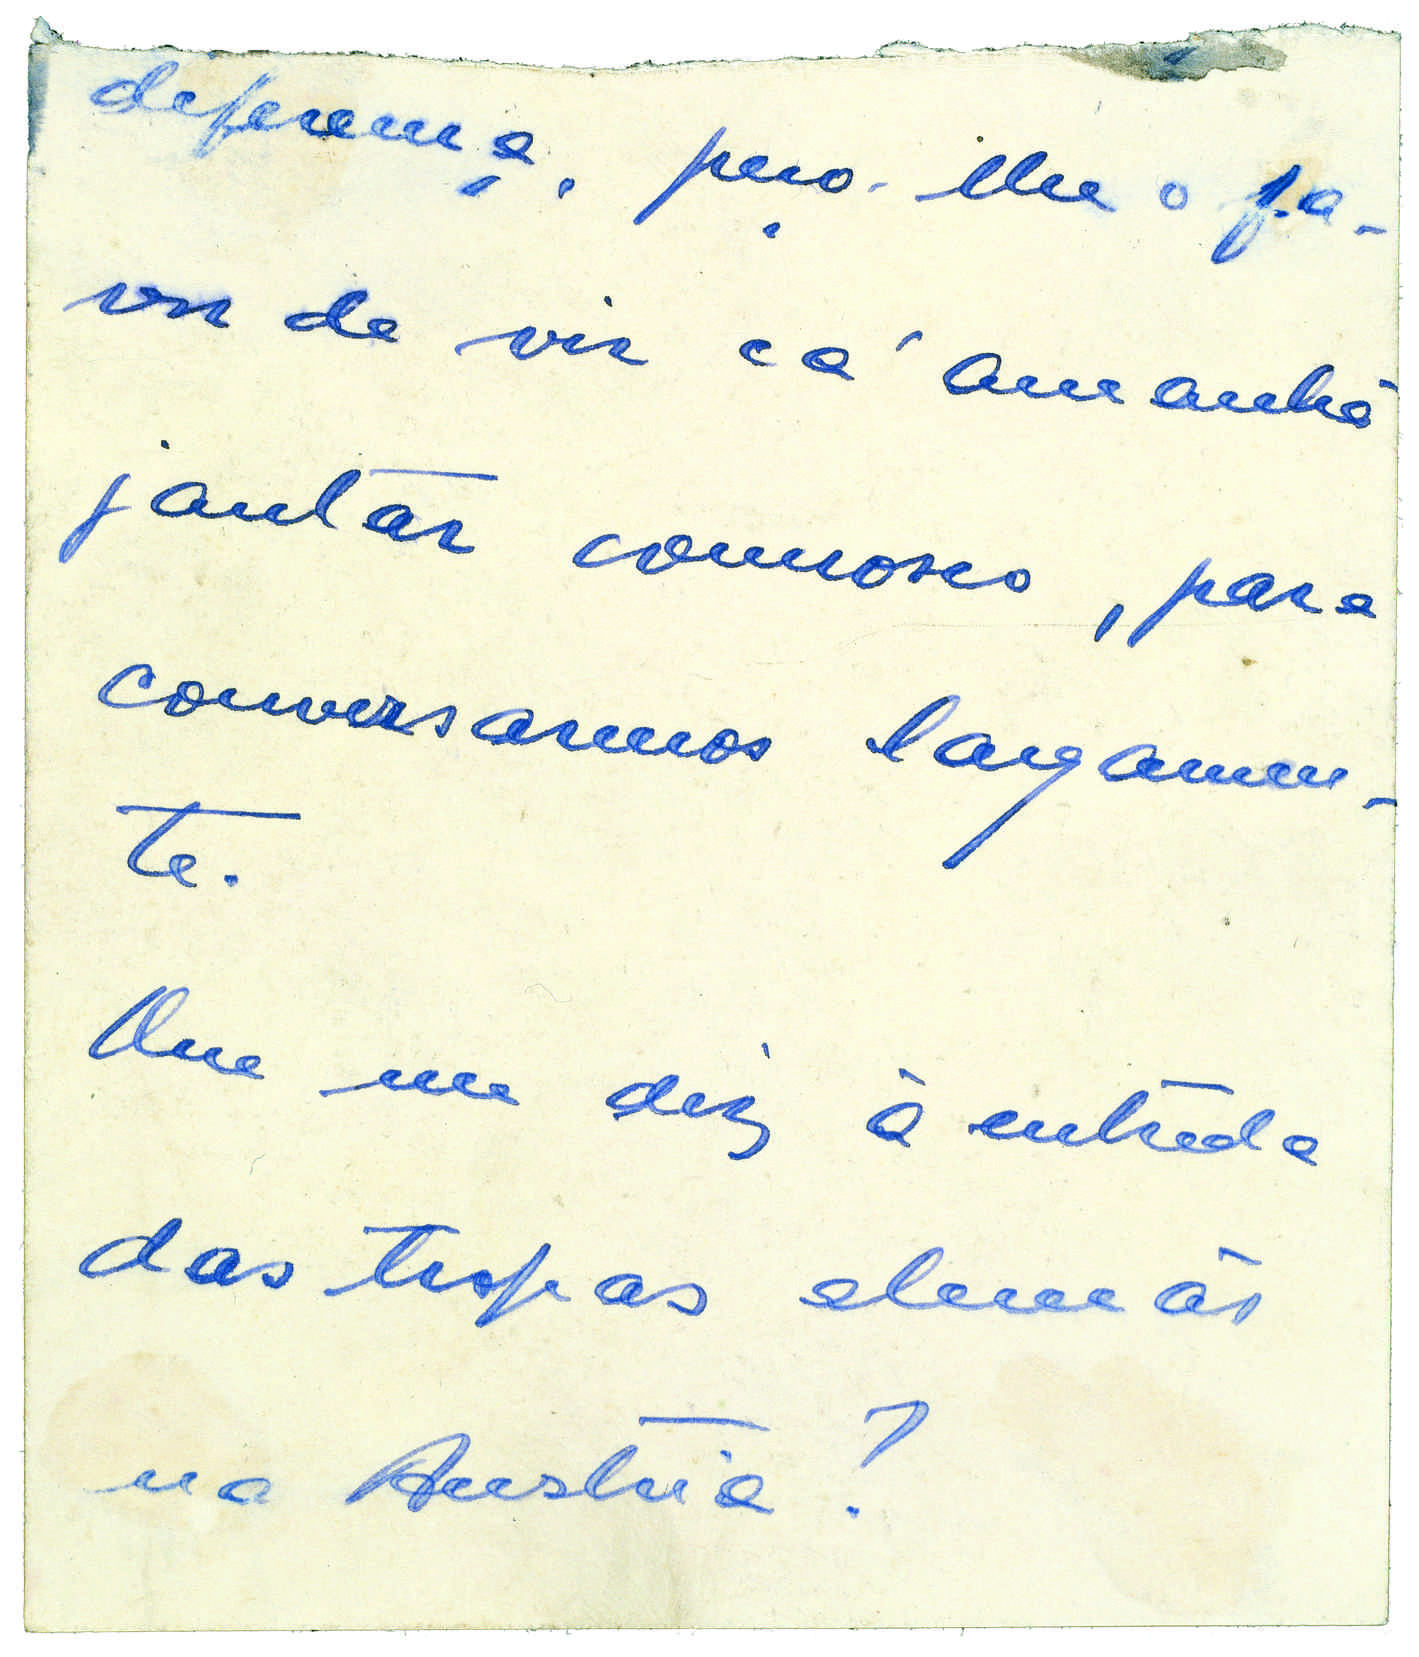 diferença, peço-lhe o fa-
vor de vir cá amanhã
jantar connosco, para
conversarmos largamen-
te.
Que me diz à entrada
das tropas alemãs
na Áustria?